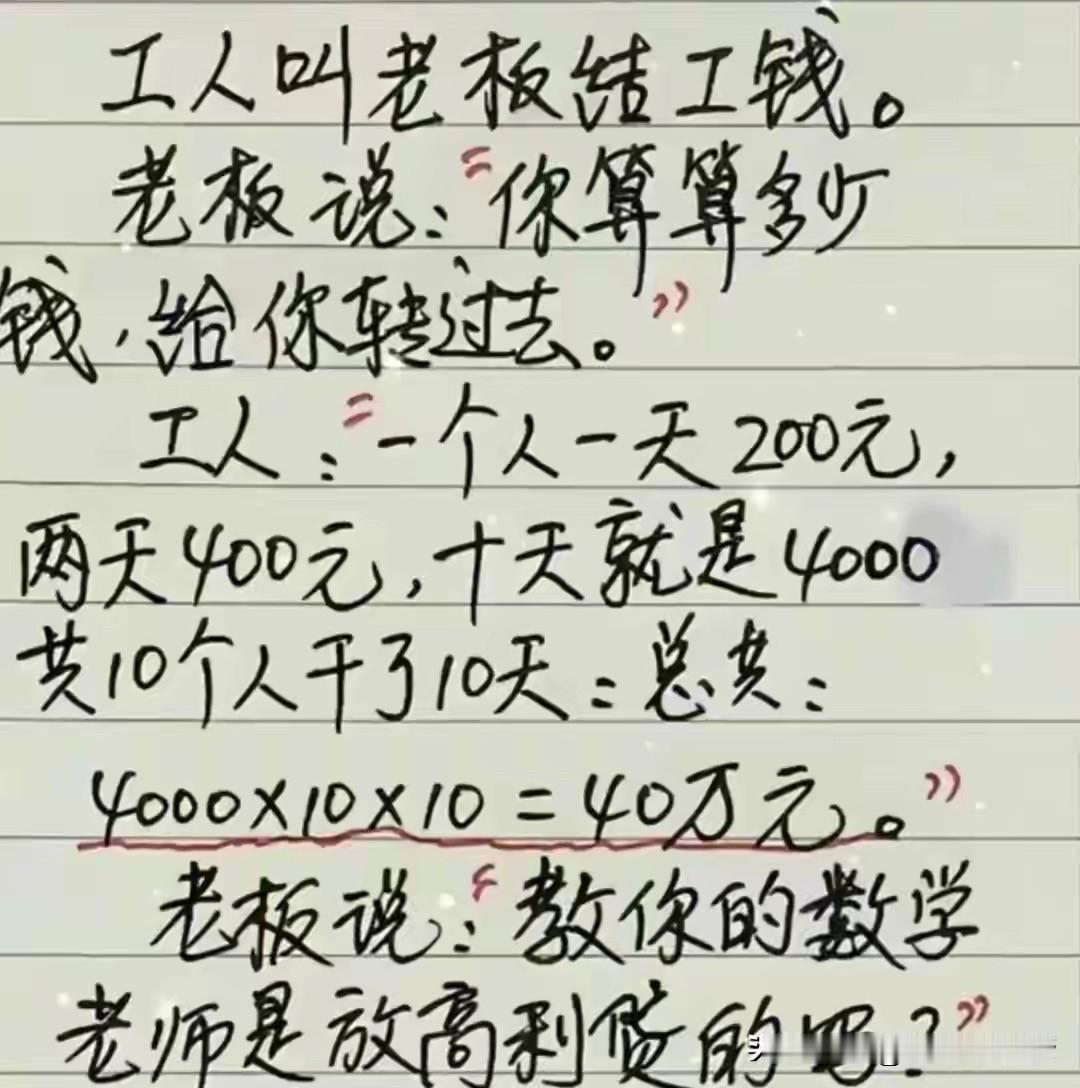 工人叫老板结工钱。
老板说："你算算多少
钱，给你转过去。"
工人："一个人一天200元，
两天400元，十天就是4000
共10个人干了10天：总共：
4000×10×10=40万元。"
老板说："教你的数学
老师是放高利贷的吧？"